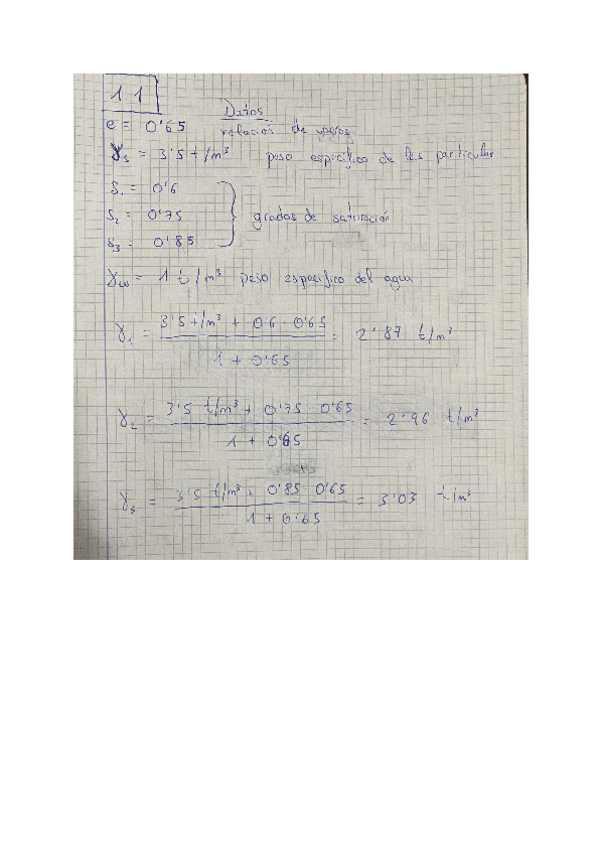 1.1
Datos
e = 0'65 relación de vacíos
γs = 3'5 t/m³ peso específico de las partículas
S₁ = 0'6
S₂ = 0'75 grados de saturación
S₃ = 0'85
γω = 1 t/m³ peso específico del agua
γ₁ = 3'5 t/m³ + 0'6 · 0'65 / 1 + 0'65 = 2'87 t/m³
γ₂ = 3'5 t/m³ + 0'75 · 0'65 / 1 + 0'65 = 2'96 t/m³
γ₃ = 3'5 t/m³ + 0'85 · 0'65 / 1 + 0'65 = 3'03 t/m³